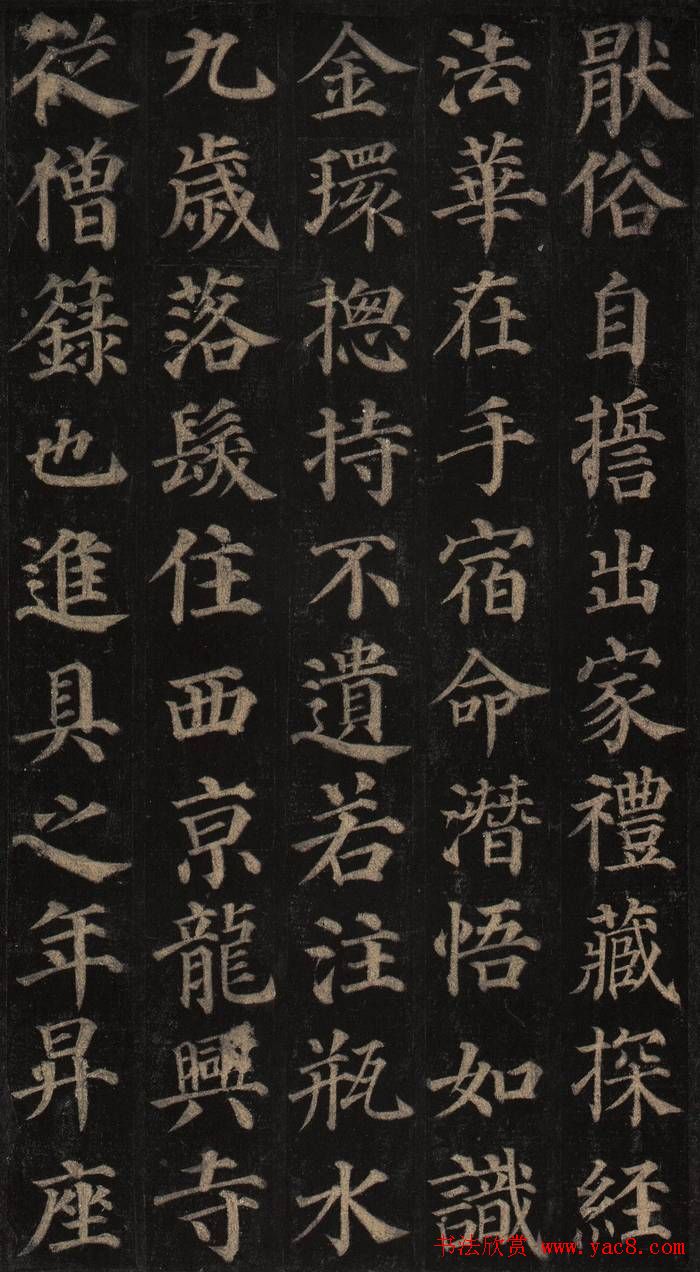 猒俗自誓出家禮藏探経
法華在手宿命潛悟如識
金環揔持不遺若注瓶水
九歲落髮住西京龍興寺
從僧籙也進具之年昇座
书法欣赏-www.yac8.com